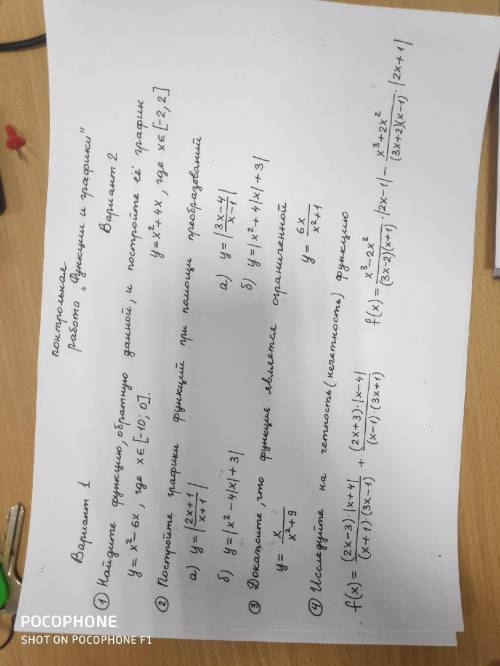 контрольная
работа „Функции и графики"
Вариант 1 Вариант 2
① Найдите функцию, обратную данной, и постройте её график
y = x² - 6x, где x ∈ [-10; 0]. y = x² + 4x, где x ∈ [-2, 2]
② Постройте графики функций при помощи преобразований
а) y = |(2x+1)/(x+1)| а) y = |(3x-4)/(x-1)|
б) y = |x² - 4|x| + 3| б) y = |x² + 4|x| + 3|
③ Докажите, что функция является ограниченной
y = x/(x²+9) y = 6x/(x²+1)
④ Исследуйте на четность (нечетность) функцию
f(x) = ((2x-3)·|x+4|)/((x+1)·(3x-1)) + ((2x+3)·|x-4|)/((x-1)·(3x+1)) f(x) = (x³-2x²)/((3x-2)(x+1)) · |2x-1| - (x³+2x²)/((3x+2)(x-1)) · |2x+1|
POCOPHONE
SHOT ON POCOPHONE F1